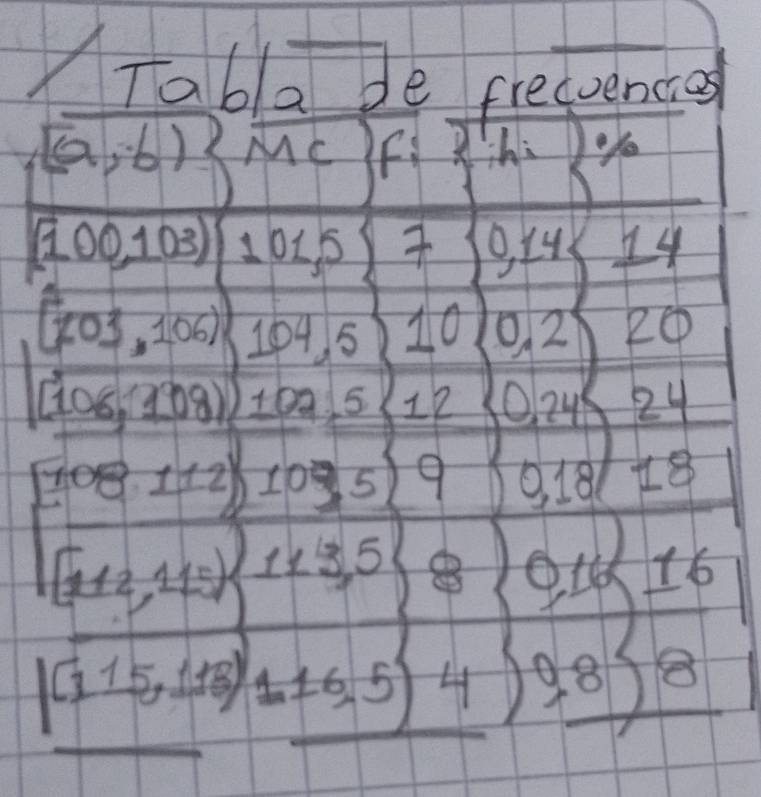 Tabla de frecuencias
[a,b) Mc fi hi %
[100,103) 101,5 7 0,14 14
[103,106) 104,5 10 0,2 20
[106,108) 107,5 12 0,24 24
[108 112) 109,5 9 0,18 18
[112,115) 113,5 8 0,16 16
[115,118) 116,5 4 0,8 8